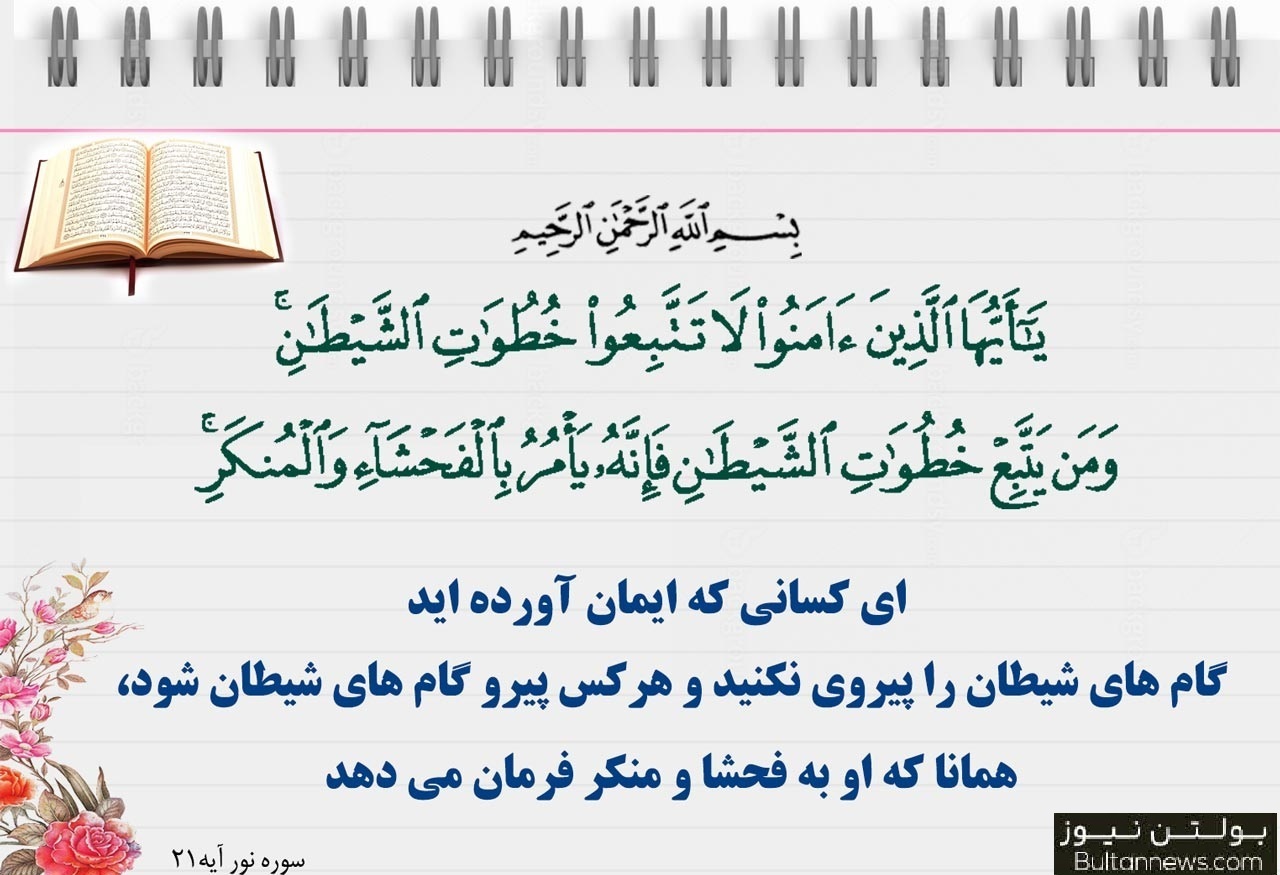 بِسْمِ ٱللَّهِ ٱلرَّحْمَٰنِ ٱلرَّحِيمِ
يَٰٓأَيُّهَا ٱلَّذِينَ ءَامَنُوا۟ لَا تَتَّبِعُوا۟ خُطُوَٰتِ ٱلشَّيْطَٰنِ ۚ
وَمَن يَتَّبِعْ خُطُوَٰتِ ٱلشَّيْطَٰنِ فَإِنَّهُۥ يَأْمُرُ بِٱلْفَحْشَآءِ وَٱلْمُنكَرِ ۚ
ای کسانی که ایمان آورده اید
گام های شیطان را پیروی نکنید و هرکس پیرو گام های شیطان شود،
همانا که او به فحشا و منکر فرمان می دهد
سوره نور آیه۲۱
بولتن نیوز
Bultannews.com